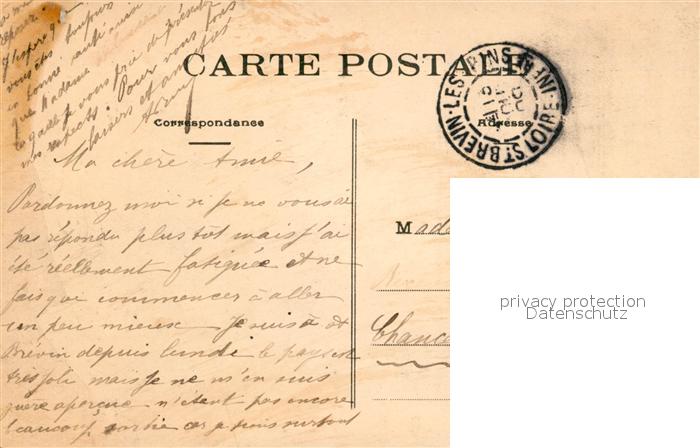 J'espère q
vous êtes toujours
en bonne santé ainsi
que Madame
je vous prie de présenter
mes respects. Pour vous tous
baisers et amitiés
CARTE POSTALE
ST BREVIN-LES-PINS LOIRE INFRE
Correspondance
Adresse
Ma chère Amie,
Pardonnez moi si je ne vous ai
pas répondu plus tôt mais j'ai
été réellement fatiguée et ne
fais que commencer à aller
un peu mieux Je suis à St
Brévin depuis lundi le pays est
très joli mais je ne m'en suis
guère aperçue n'étant pas encore
beaucoup sortie car je suis surtout
Made
Chance
privacy protection
Datenschutz